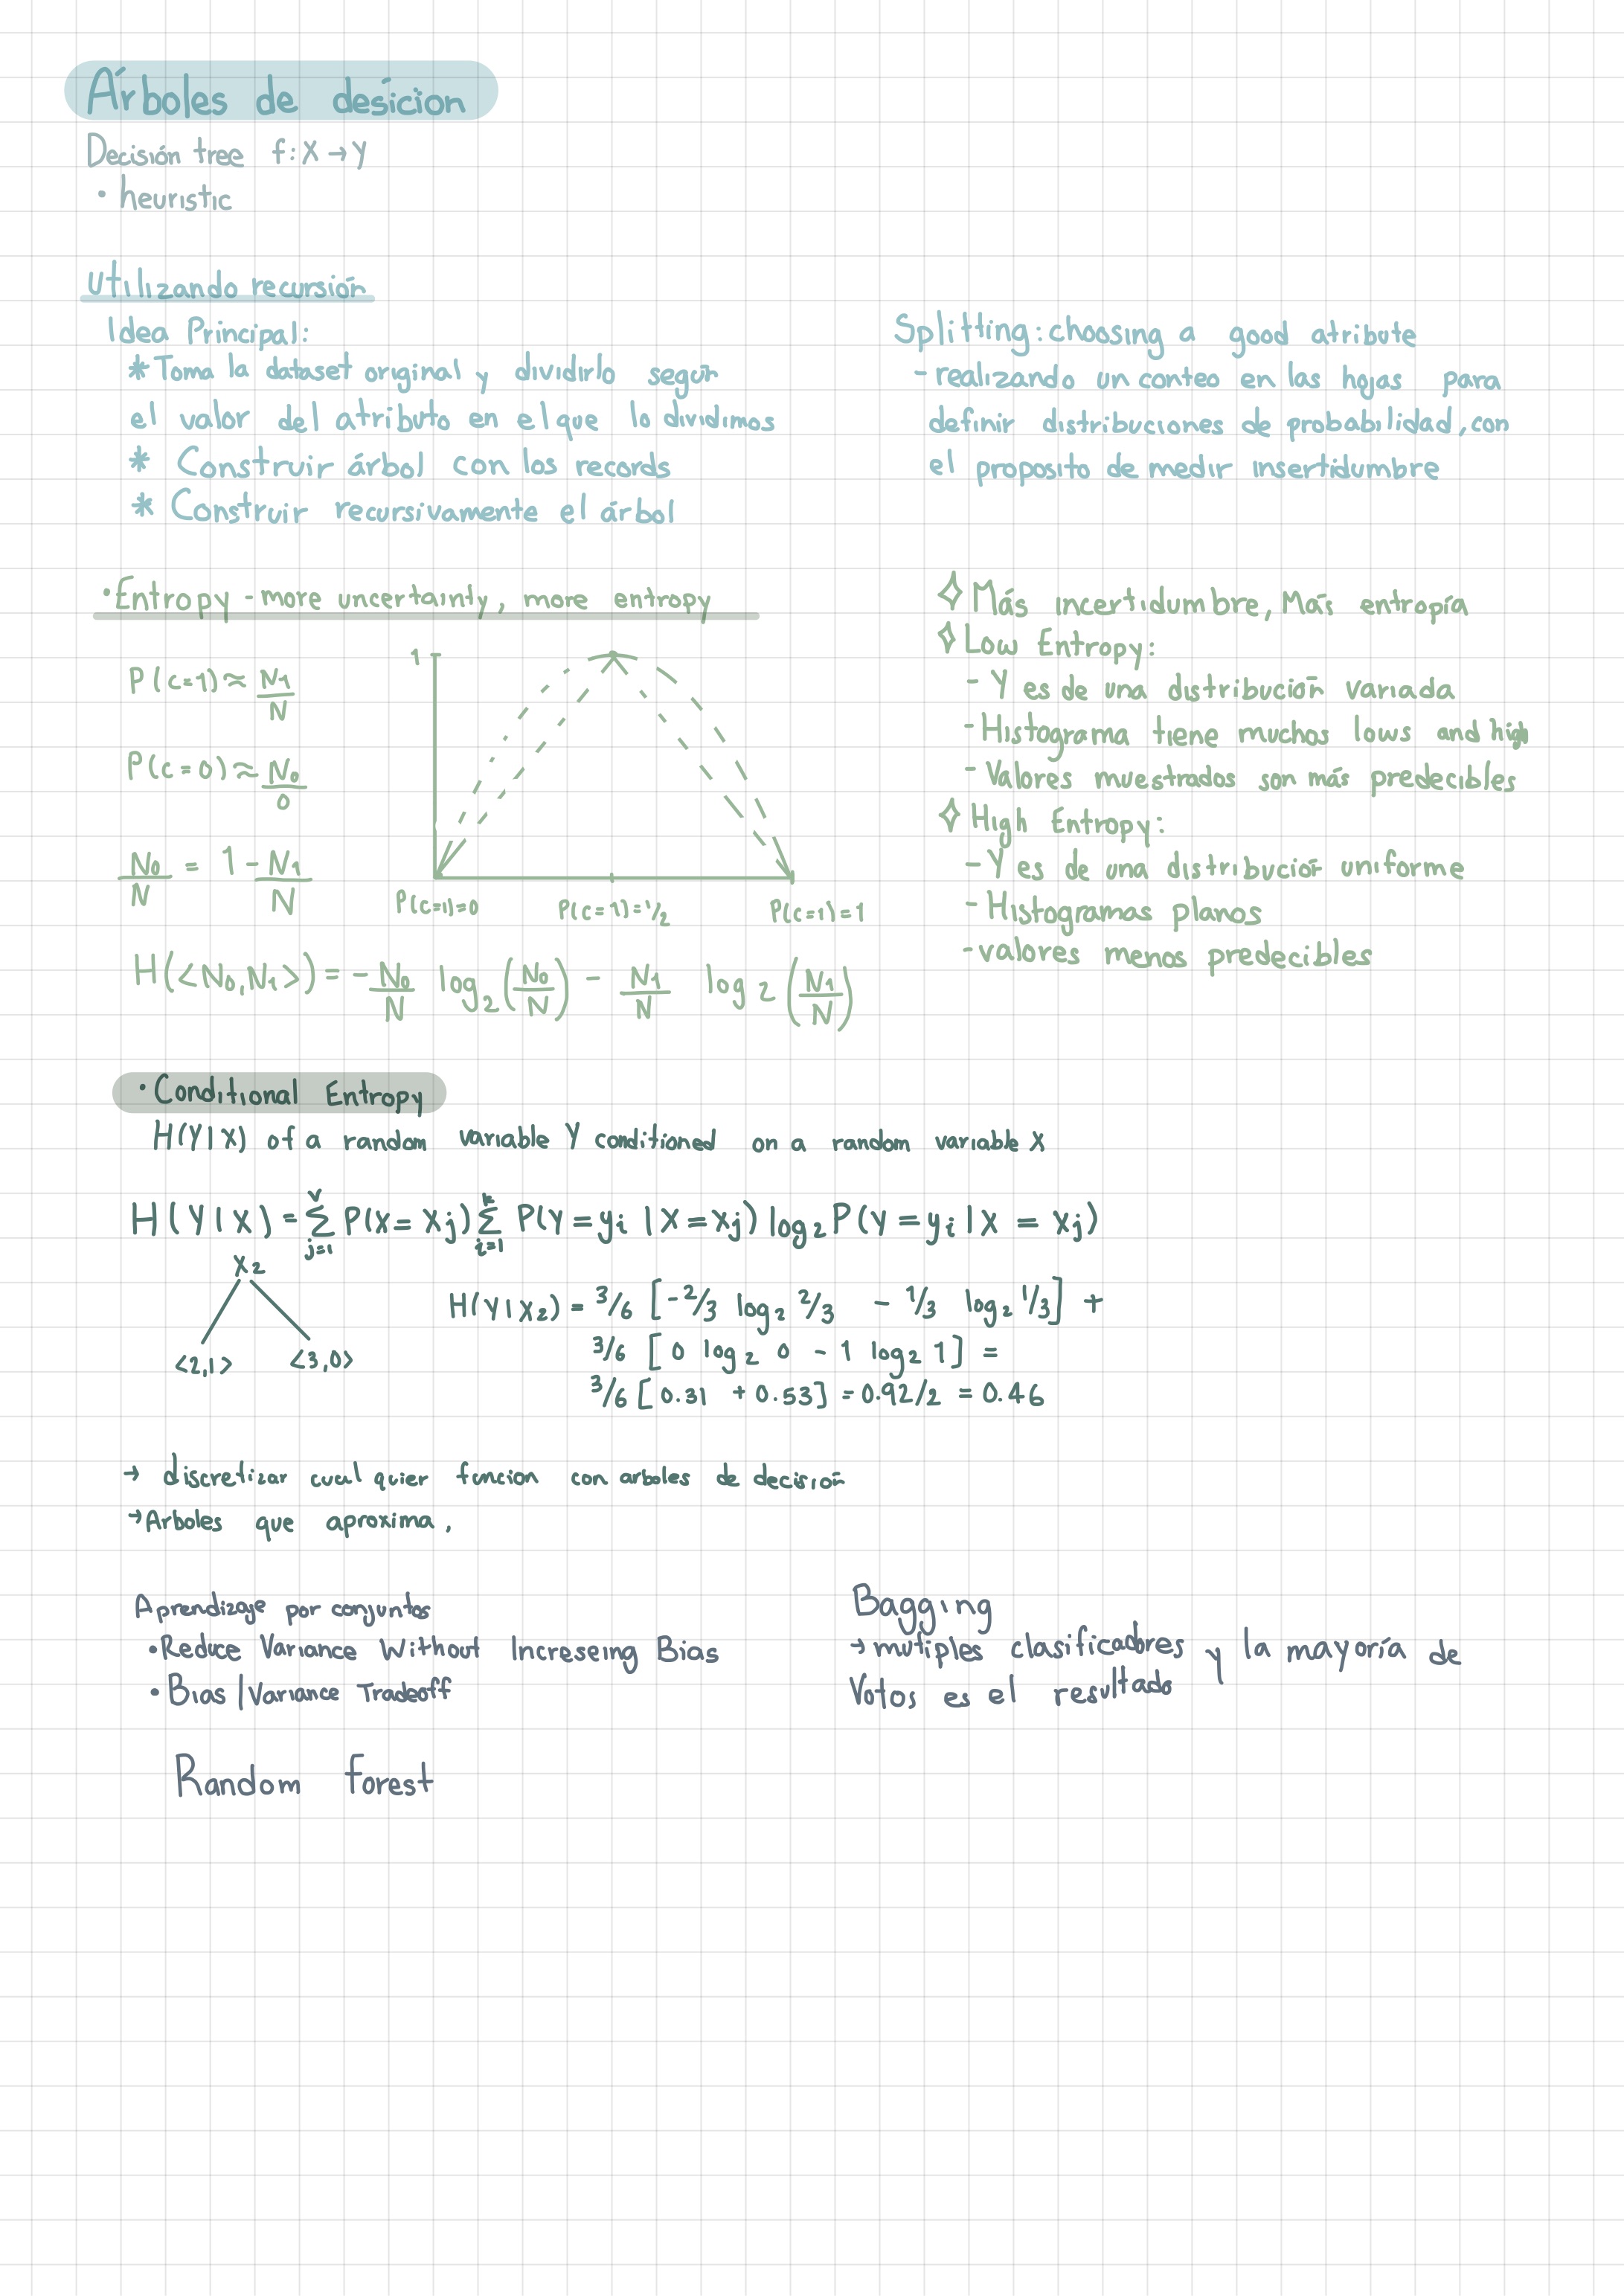 Árboles de desicion
Decisión tree f: X → Y
• heuristic
utilizando recursión
Idea Principal:
* Toma la dataset original y dividirlo segun
el valor del atributo en el que lo dividimos
* Construir árbol con los records
* Construir recursivamente el árbol
Splitting: choosing a good atribute
- realizando un conteo en las hojas para
definir distribuciones de probabilidad, con
el proposito de medir insertidumbre
• Entropy - more uncertainty, more entropy
P(c=1) ≈ N1/N
P(c=0) ≈ N0/0
N0/N = 1 - N1/N
1
P(c=1)=0 P(c=1)=1/2 P(c=1)=1
H(<N0,N1>) = - N0/N log2 (N0/N) - N1/N log2 (N1/N)
✧ Más incertidumbre, Más entropía
✧ Low Entropy:
- Y es de una distribución variada
- Histograma tiene muchos lows and high
- Valores muestrados son más predecibles
✧ High Entropy:
- Y es de una distribución uniforme
- Histogramas planos
- valores menos predecibles
• Conditional Entropy
H(Y|X) of a random variable Y conditioned on a random variable X
H(Y|X) = Σ j=1 v P(X=xj) Σ i=1 k P(Y=yi | X=xj) log2 P(Y=yi | X=xj)
X2
<2,1> <3,0>
H(Y|X2) = 3/6 [-2/3 log2 2/3 - 1/3 log2 1/3] +
3/6 [0 log2 0 - 1 log2 1] =
3/6 [0.31 + 0.53] = 0.92/2 = 0.46
→ discretizar cual quier funcion con arboles de decisión
→ Arboles que aproxima.
Aprendizaje por conjuntos
• Reduce Variance Without Increseing Bias
• Bias / Variance Tradeoff
Random forest
Bagging
→ mutiples clasificadores y la mayoría de
Votos es el resultado